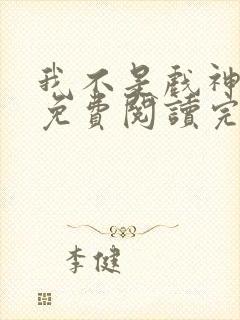 我不是戏神
免費閱讀完
李健